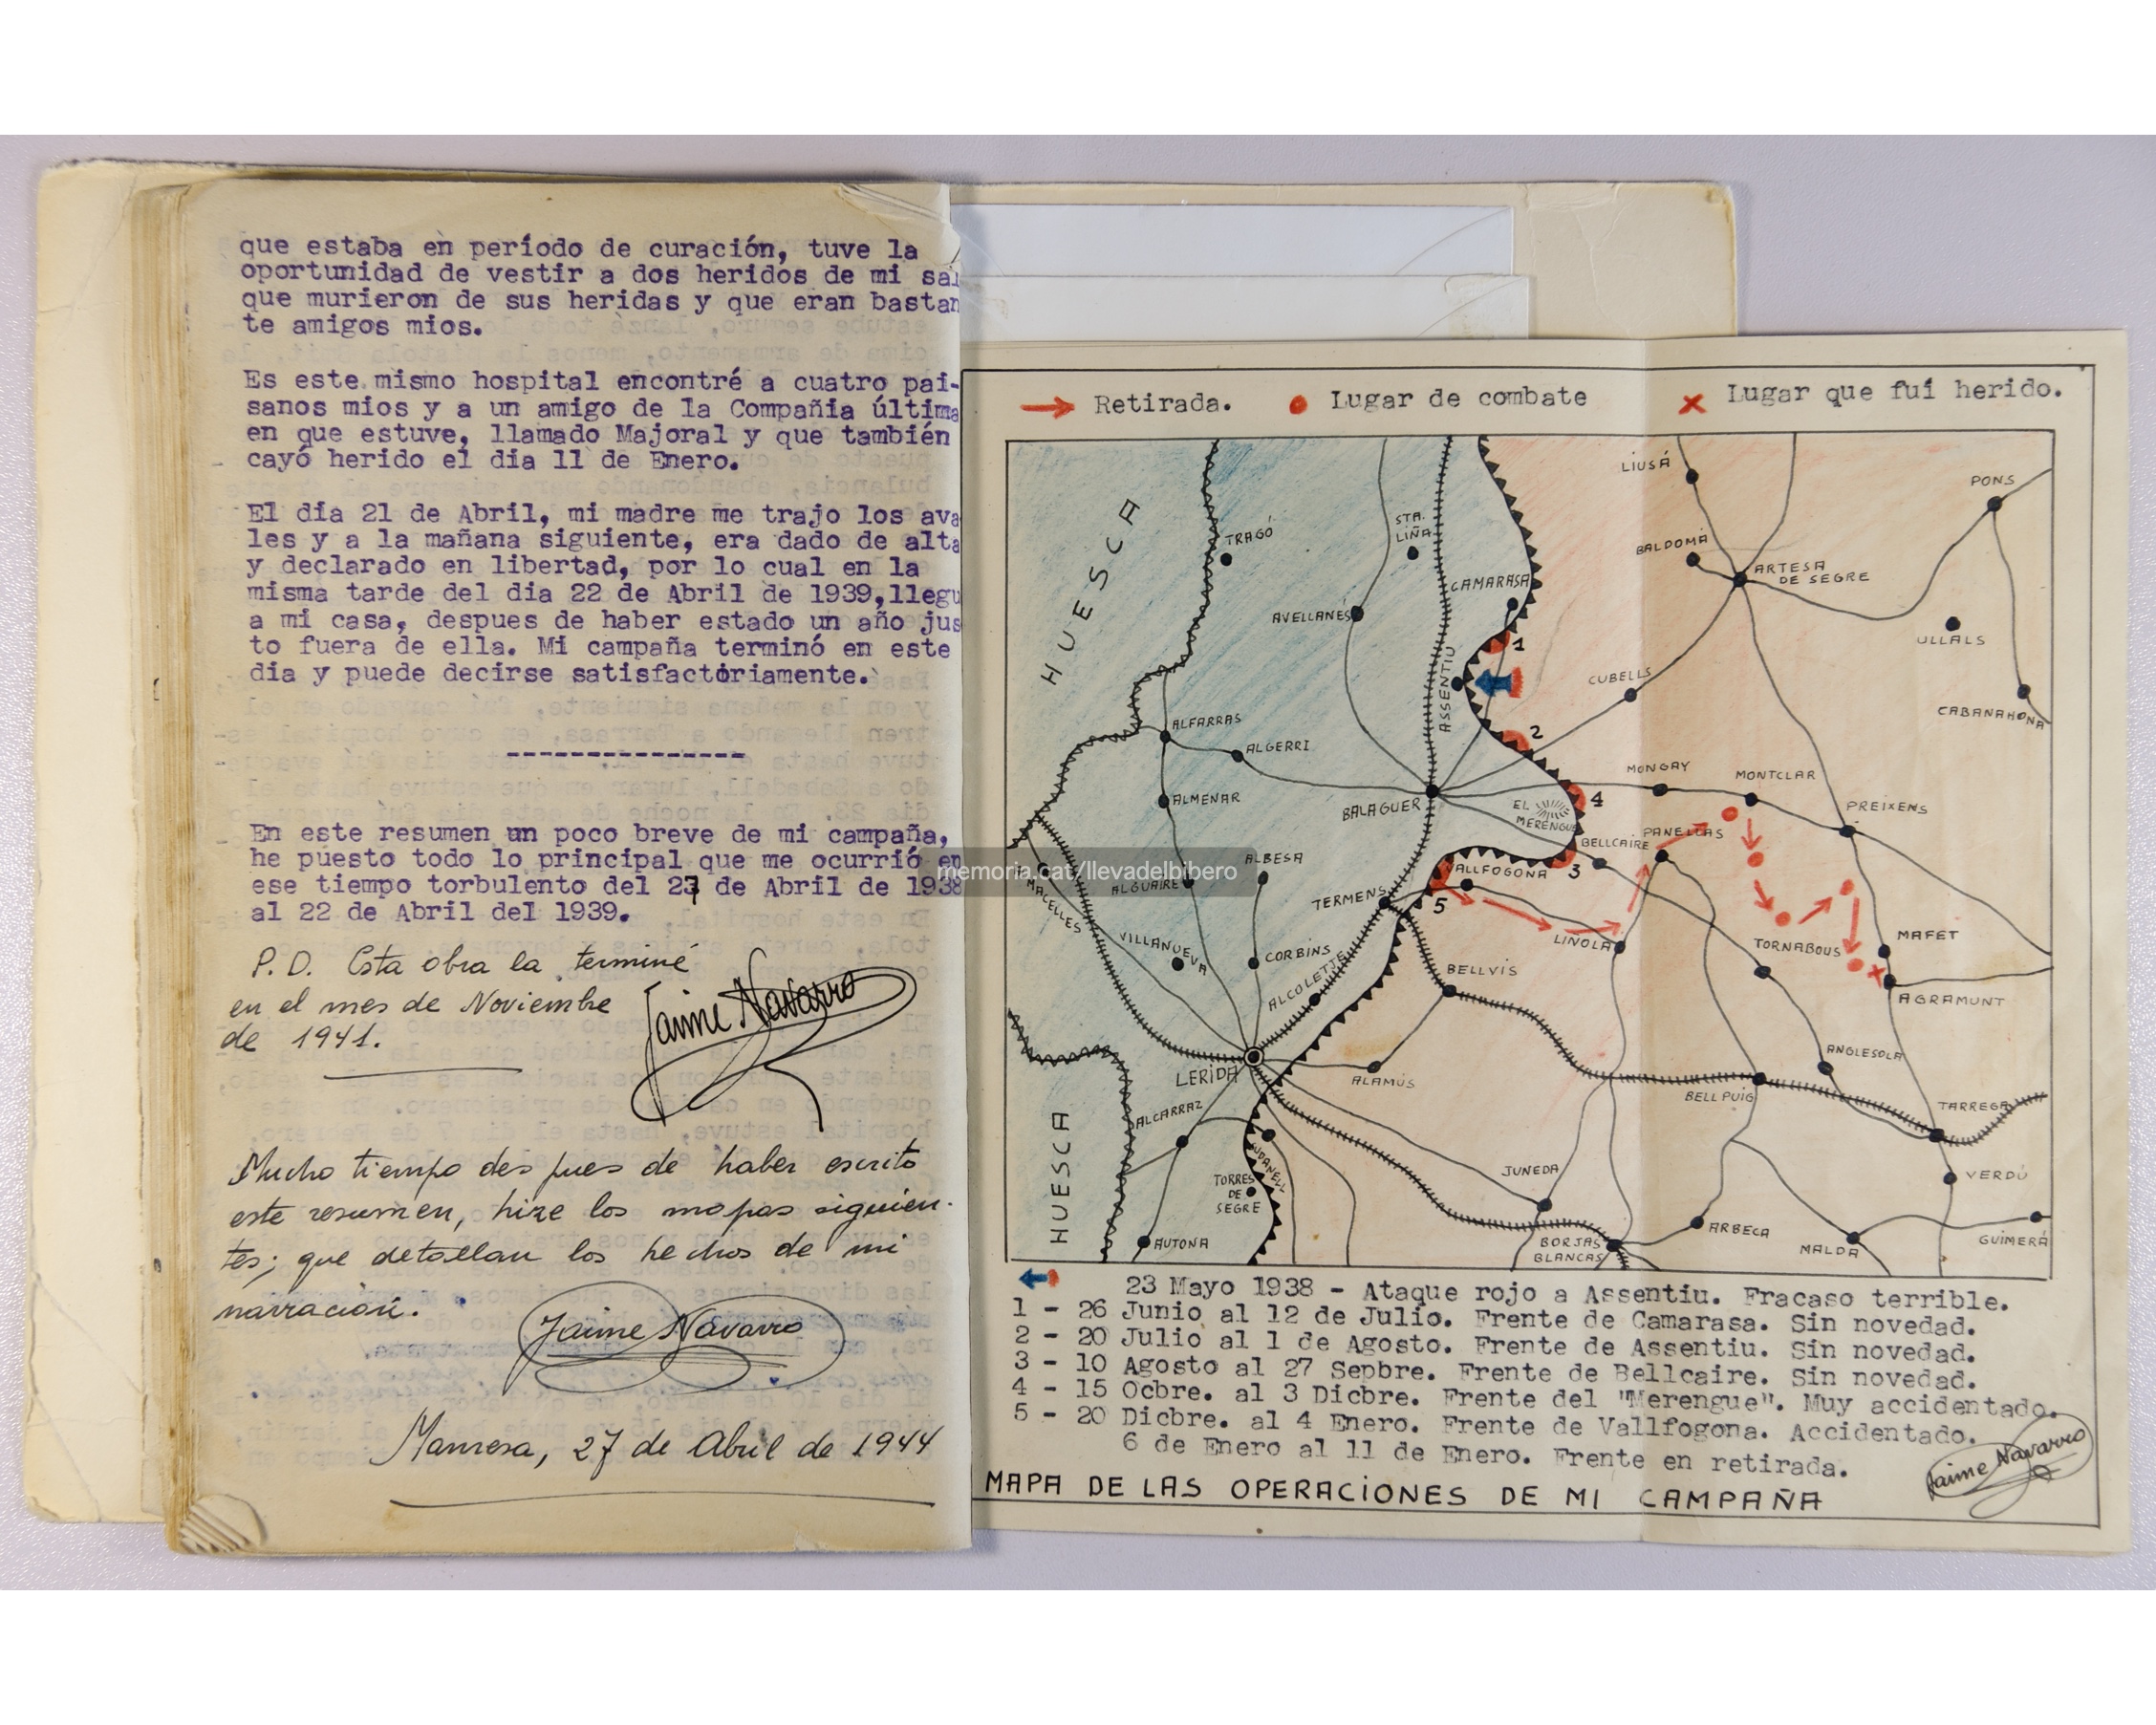 que estaba en período de curación, tuve la
oportunidad de vestir a dos heridos de mi sal
que murieron de sus heridas y que eran bastan
te amigos mios.
Es este mismo hospital encontré a cuatro pai-
sanos mios y a un amigo de la Compañia última
en que estuve, llamado Majoral y que también
cayó herido el dia 11 de Enero.
El dia 21 de Abril, mi madre me trajo los ava
les y a la mañana siguiente, era dado de alta
y declarado en libertad, por lo cual en la
misma tarde del dia 22 de Abril de 1939,llegu
a mi casa, despues de haber estado un año jus
to fuera de ella. Mi campaña terminó en este
dia y puede decirse satisfactoriamente.
---------------
En este resumen un poco breve de mi campaña,
he puesto todo lo principal que me ocurrió en
ese tiempo torbulento del 27 de Abril de 1938
al 22 de Abril del 1939.
P.D. Esta obra la terminé
en el mes de Noviembre
de 1941.
Jaime Navarro
Mucho tiempo des pues de haber escrito
este resumen, hize los mapas siguien-
tes; que detallan los hechos de mi
narración.
Jaime Navarro
Manresa, 27 de Abril de 1944
Retirada.
Lugar de combate
Lugar que fuí herido.
HUESCA
TRAGÓ
STA. LIÑA
CAMARASA
AVELLANÉS
ASSENTIU
LIUSÁ
PONS
BALDOMÁ
ARTESA DE SEGRE
ULLALS
CABANAHONA
CUBELLS
1
2
ALFARRAS
ALGERRI
ALMENAR
BALAGUER
EL MERENGUE
4
MONGAY
MONTCLAR
PREIXENS
PANELLAS
BELLCAIRE
3
VALLFOGONA
5
ALBESA
ALGUAIRE
TERMENS
VILLANUEVA
CORBINS
ALCOLETTE
LIÑOLA
TORNABOUS
MAFET
AGRAMUNT
BELLVIS
LERIDA
ALAMÚS
ANGLESOLA
BELLPUIG
TARREGA
HUESCA
ALCARRAZ
TORRES DE SEGRE
AUTONA
JUNEDA
BORJAS BLANCAS
ARBECA
MALDA
VERDÚ
GUIMERÁ
memoria.cat/llevadelbibero
23 Mayo 1938 - Ataque rojo a Assentiu. Fracaso terrible.
1 - 26 Junio al 12 de Julio. Frente de Camarasa. Sin novedad.
2 - 20 Julio al 1 de Agosto. Frente de Assentiu. Sin novedad.
3 - 10 Agosto al 27 Sepbre. Frente de Bellcaire. Sin novedad.
4 - 15 Ocbre. al 3 Dicbre. Frente del "Merengue". Muy accidentado.
5 - 20 Dicbre. al 4 Enero. Frente de Vallfogona. Accidentado.
6 de Enero al 11 de Enero. Frente en retirada.
Jaime Navarro
MAPA DE LAS OPERACIONES DE MI CAMPAÑA